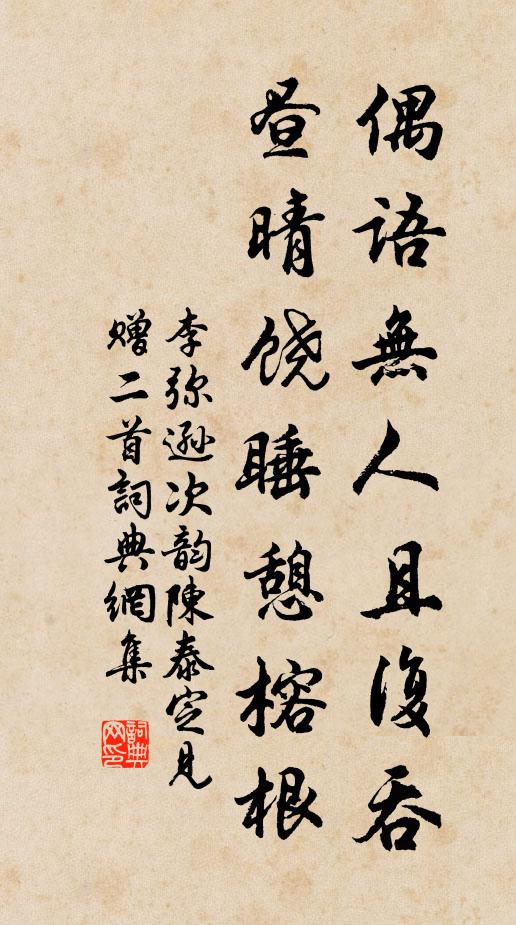 偶語無人且復吞
昼晴饶睡憩榕根
李弥遜次韵陳泰定見
赠二首詞典網集
詞典
网印